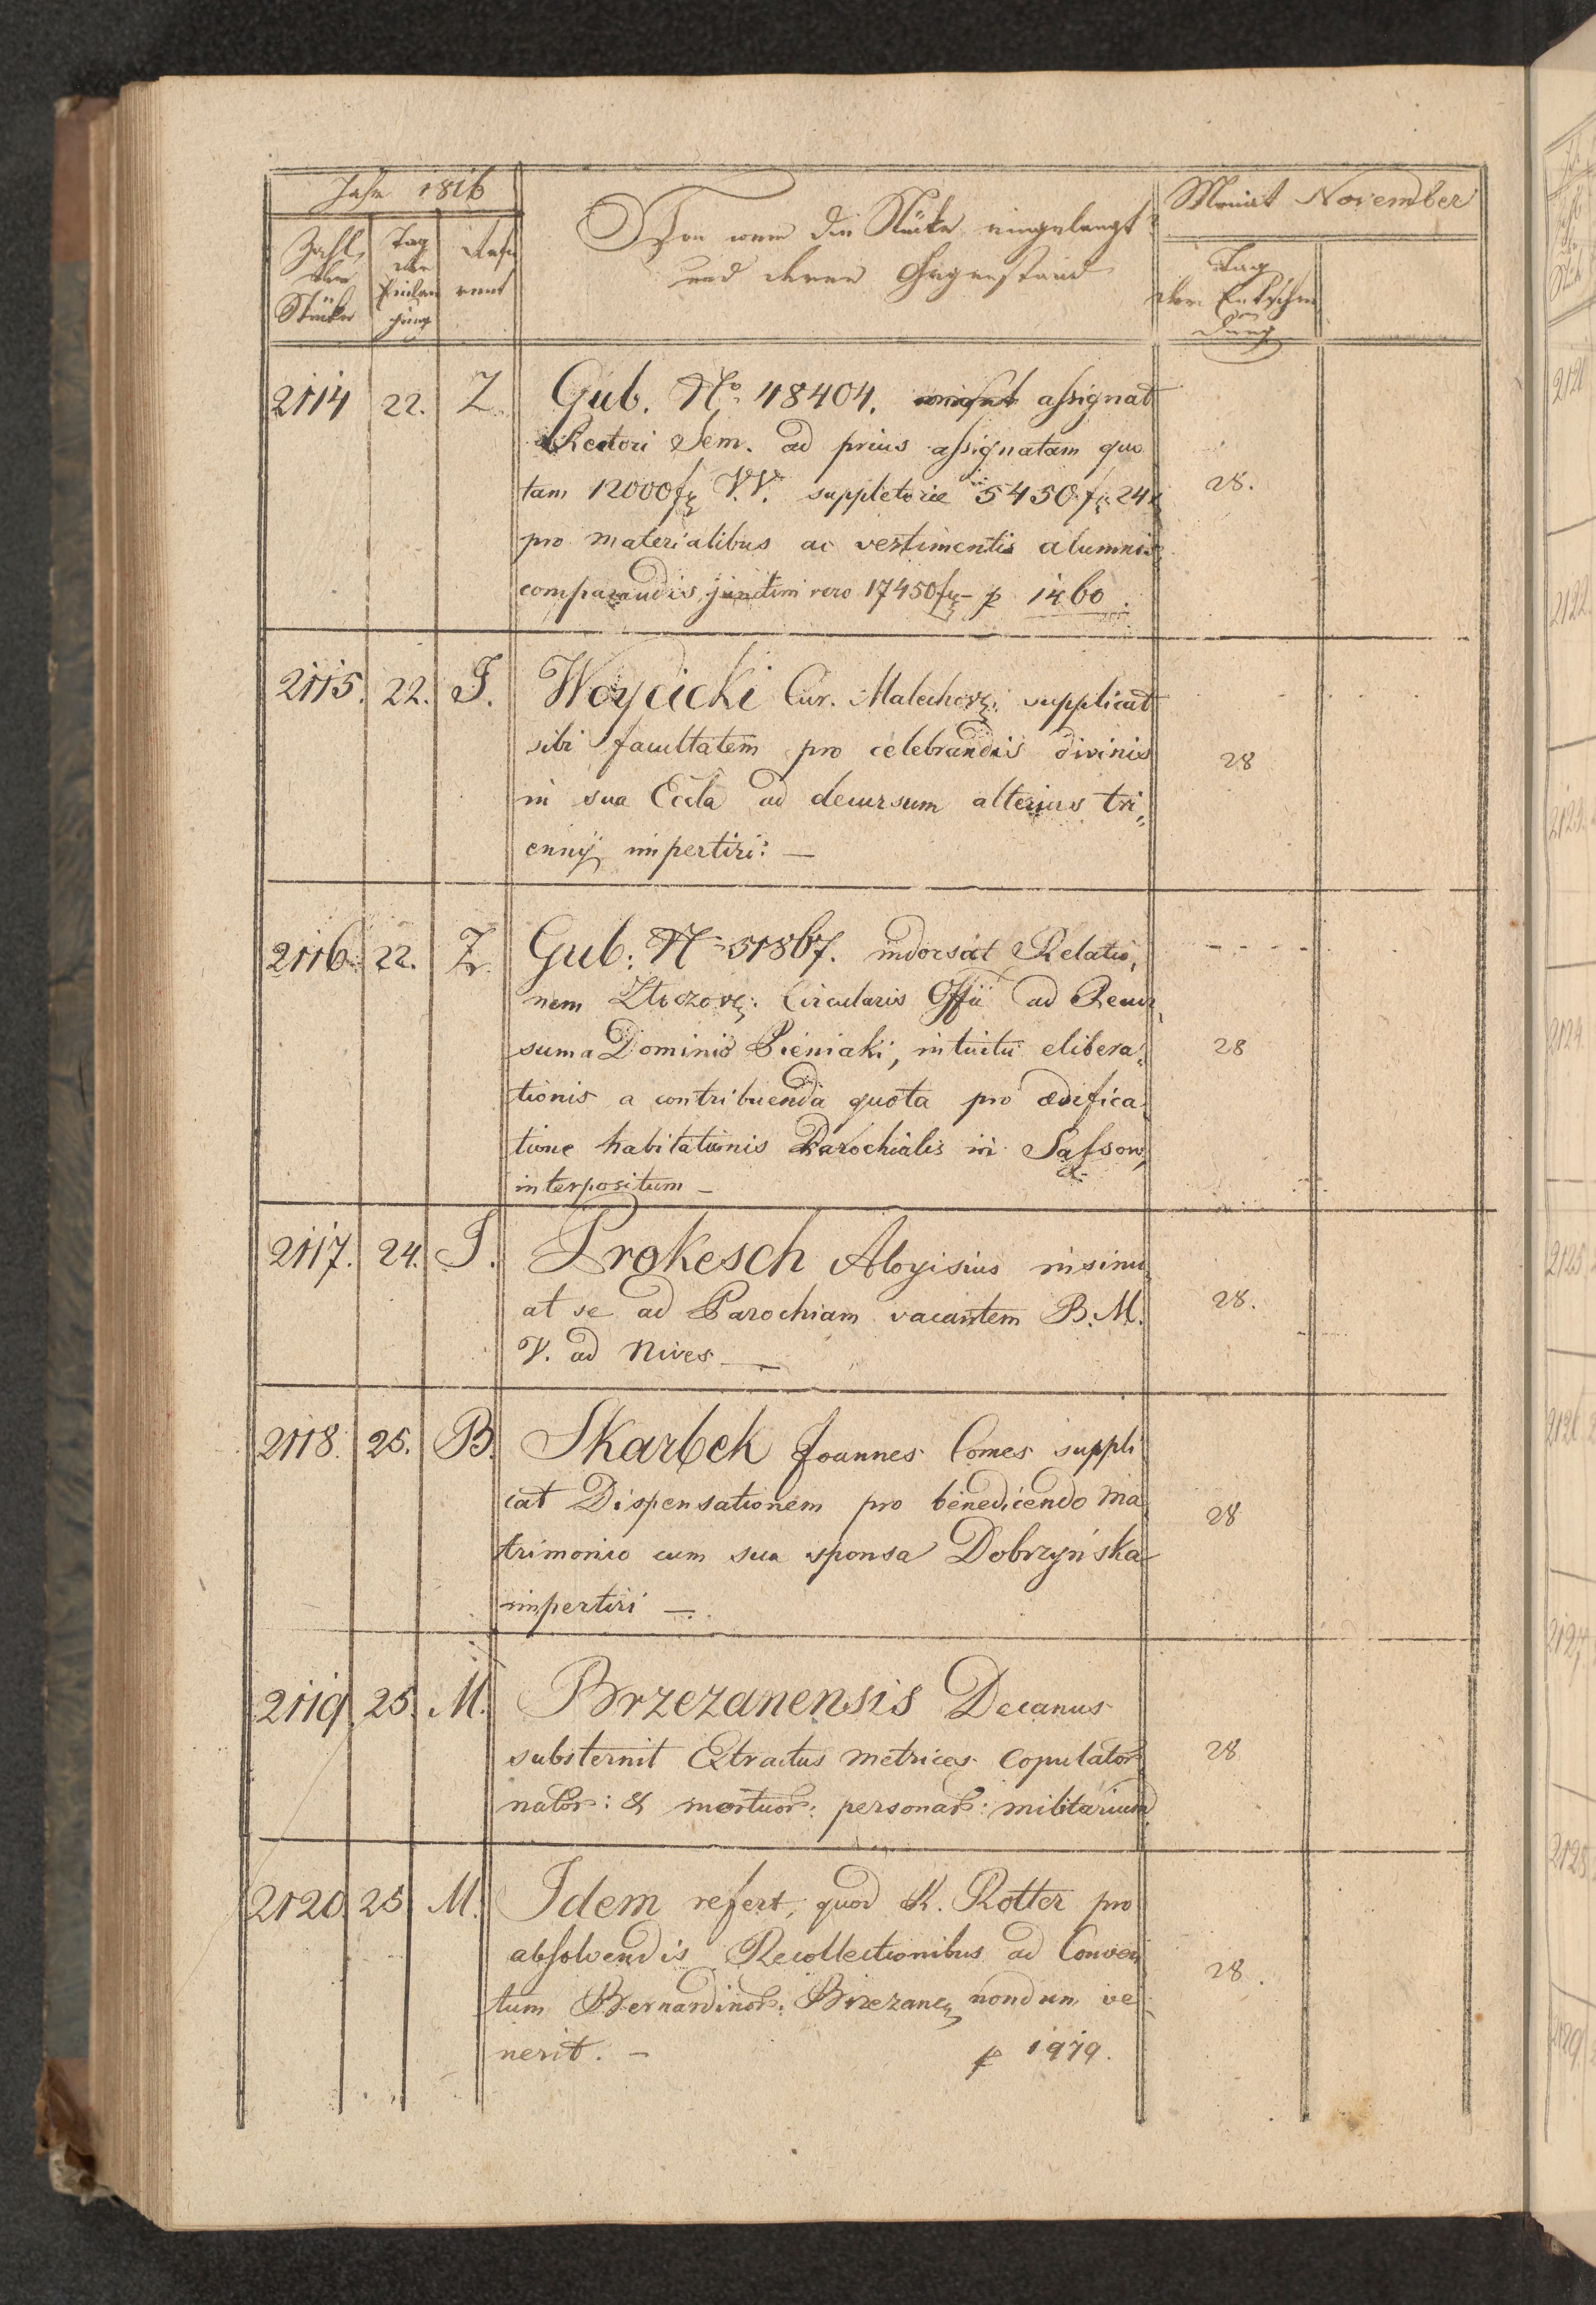 Jahr 1816
Monat November
Zahl der Stücke
Tag der Einlangung
Referent
Von wem die Stücke eingelangt
und deren Gegenstand
Tag
der Entscheidung
2114 22. Z. Gub. No 48404. assignat
Rectori Sem. ad prius assignatam quo
tam 12000 fr V.V. suppletorie 5450 fr 24 x
pro materialibus ac vestimentis alumnis
comparandis, junctim vero 17450 fr – p 1460.
28.
2115. 22. J. Woycicki Cur. Malechov: supplicat
sibi facultatem pro celebrandis divinis
in sua Eccla ad decursum alterius tri„
ennij impertiri: —
28
2116. 22. Z. Gub: N 51867. indorsat Relatio„
nem Zloczov: Circularis Offii ad Recur„
sum a Dominio Pieniaki, intuitu elibera„
tionis a contribuenda quota pro ædifica„
tione habitationis Parochialis in Sassow,
interpositum —
28
2117. 24. J. Prokesch Aloyisius insinu„
at se ad Parochiam vacantem B. M.
V. ad Nives —
28.
2118. 25. B. Skarbek Joannes Comes suppli
cat Dispensationem pro benedicendo ma
trimonio cum sua sponsa Dobrzyńska
impertiri —
28
2119 25. M. Brzezanensis Decanus
substernit Extractus metrices copulator:
nator: & mortuor: personar: militarium
28
2120. 25 M. Idem refert, quod R. Rotter pro
absolvendis Recollectionibus ad Conven
tum Bernardinor: Brzezane: nondum ve
nerit. — p 1979.
28.